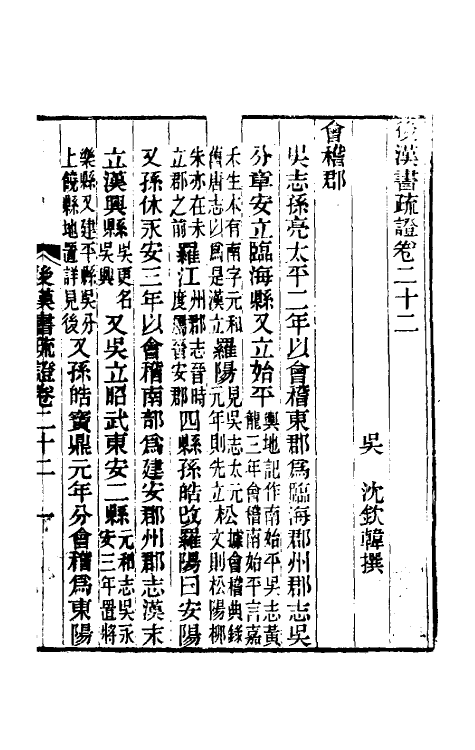 後漢書疏證卷二十二
吳 沈欽韓撰
會稽郡
吳志孫亮太平二年以會稽東郡為臨海郡州郡志吳
分章安立臨海縣又立始平輿地記作南始平吳志黃龍三年會稽南始平言嘉
禾生本有南字元和舊唐志以為是漢立羅陽見吳志太元元年則先立松據會稽典錄文則松陽柳
朱亦在未立郡之前羅江州郡志晉時度屬晉安郡四縣孫皓改羅陽曰安陽
又孫休永安三年以會稽南部為建安郡州郡志漢末
立漢興縣吳更名吳興又吳立昭武東安二縣元和志吳永安三年置將
樂縣又建平縣吳分上饒縣地置詳見後又孫皓寶鼎元年分會稽為東陽
後漢書疏證卷二十二